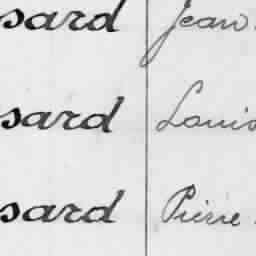 sard Jean
sard Louis
sard Pierre